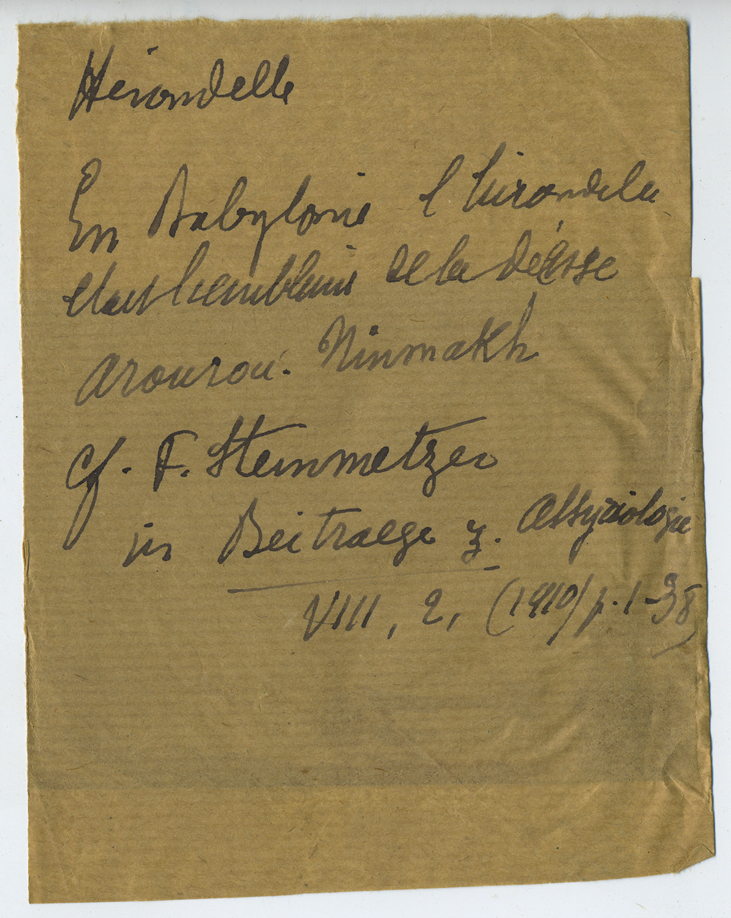 Hirondelle
En Babylonie l'hirondelle
etait l'embleme de la déesse
Arourou. Ninmakh
cf. F. Steinmetzer
in Beitraege z. Assyriologie
VIII, 2, (1910) p. 1-38